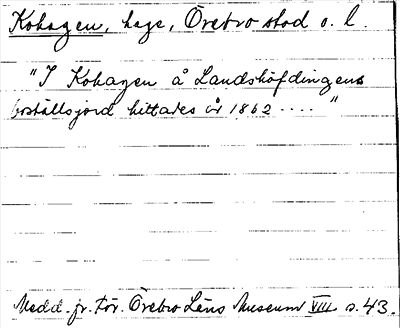 Kohagen, hage, Örebro stad o. l.
"I Kohagen å Landshöfdingens
boställsjord hittades år 1862 .... "
Medd. fr. För. Örebro Läns Museum VIII s. 43.